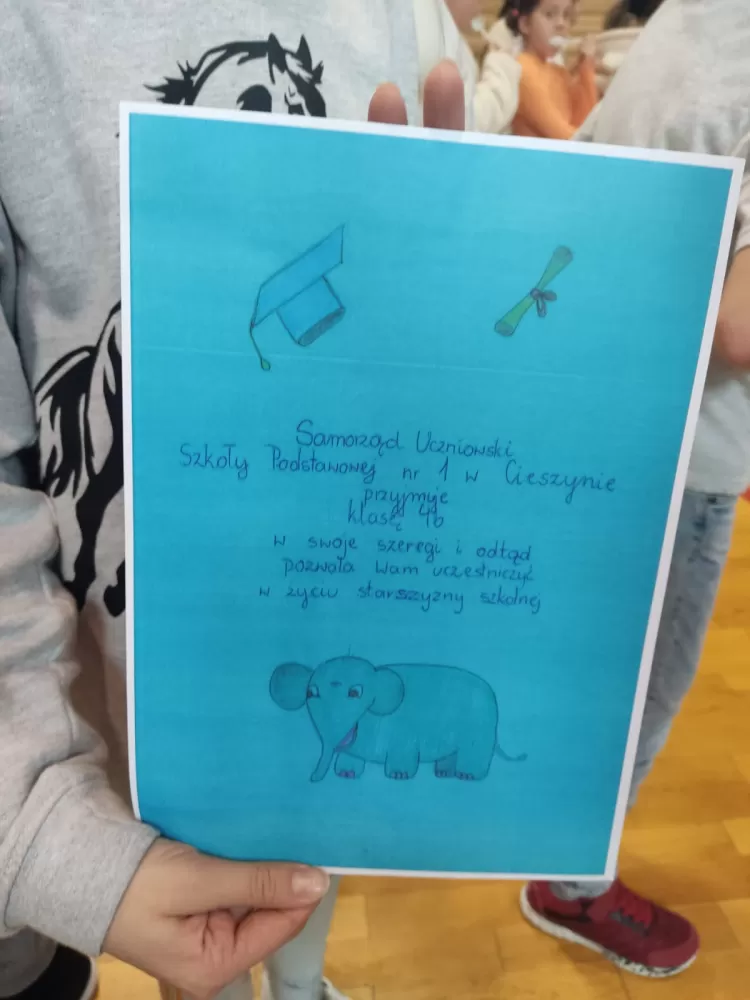 Samorząd Uczniowski
Szkoły Podstawowej nr 1 w Cieszynie
przyjmuje
klasę 4b
w swoje szeregi i odtąd
pozwala Wam uczestniczyć
w życiu starszyzny szkolnej